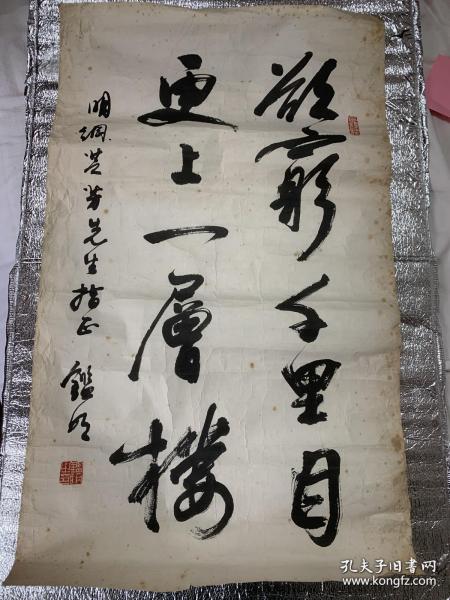 欲窮千里目
更上一層樓
明綱芸芳先生指正 鑑明
孔夫子旧书网
www.kongfz.com